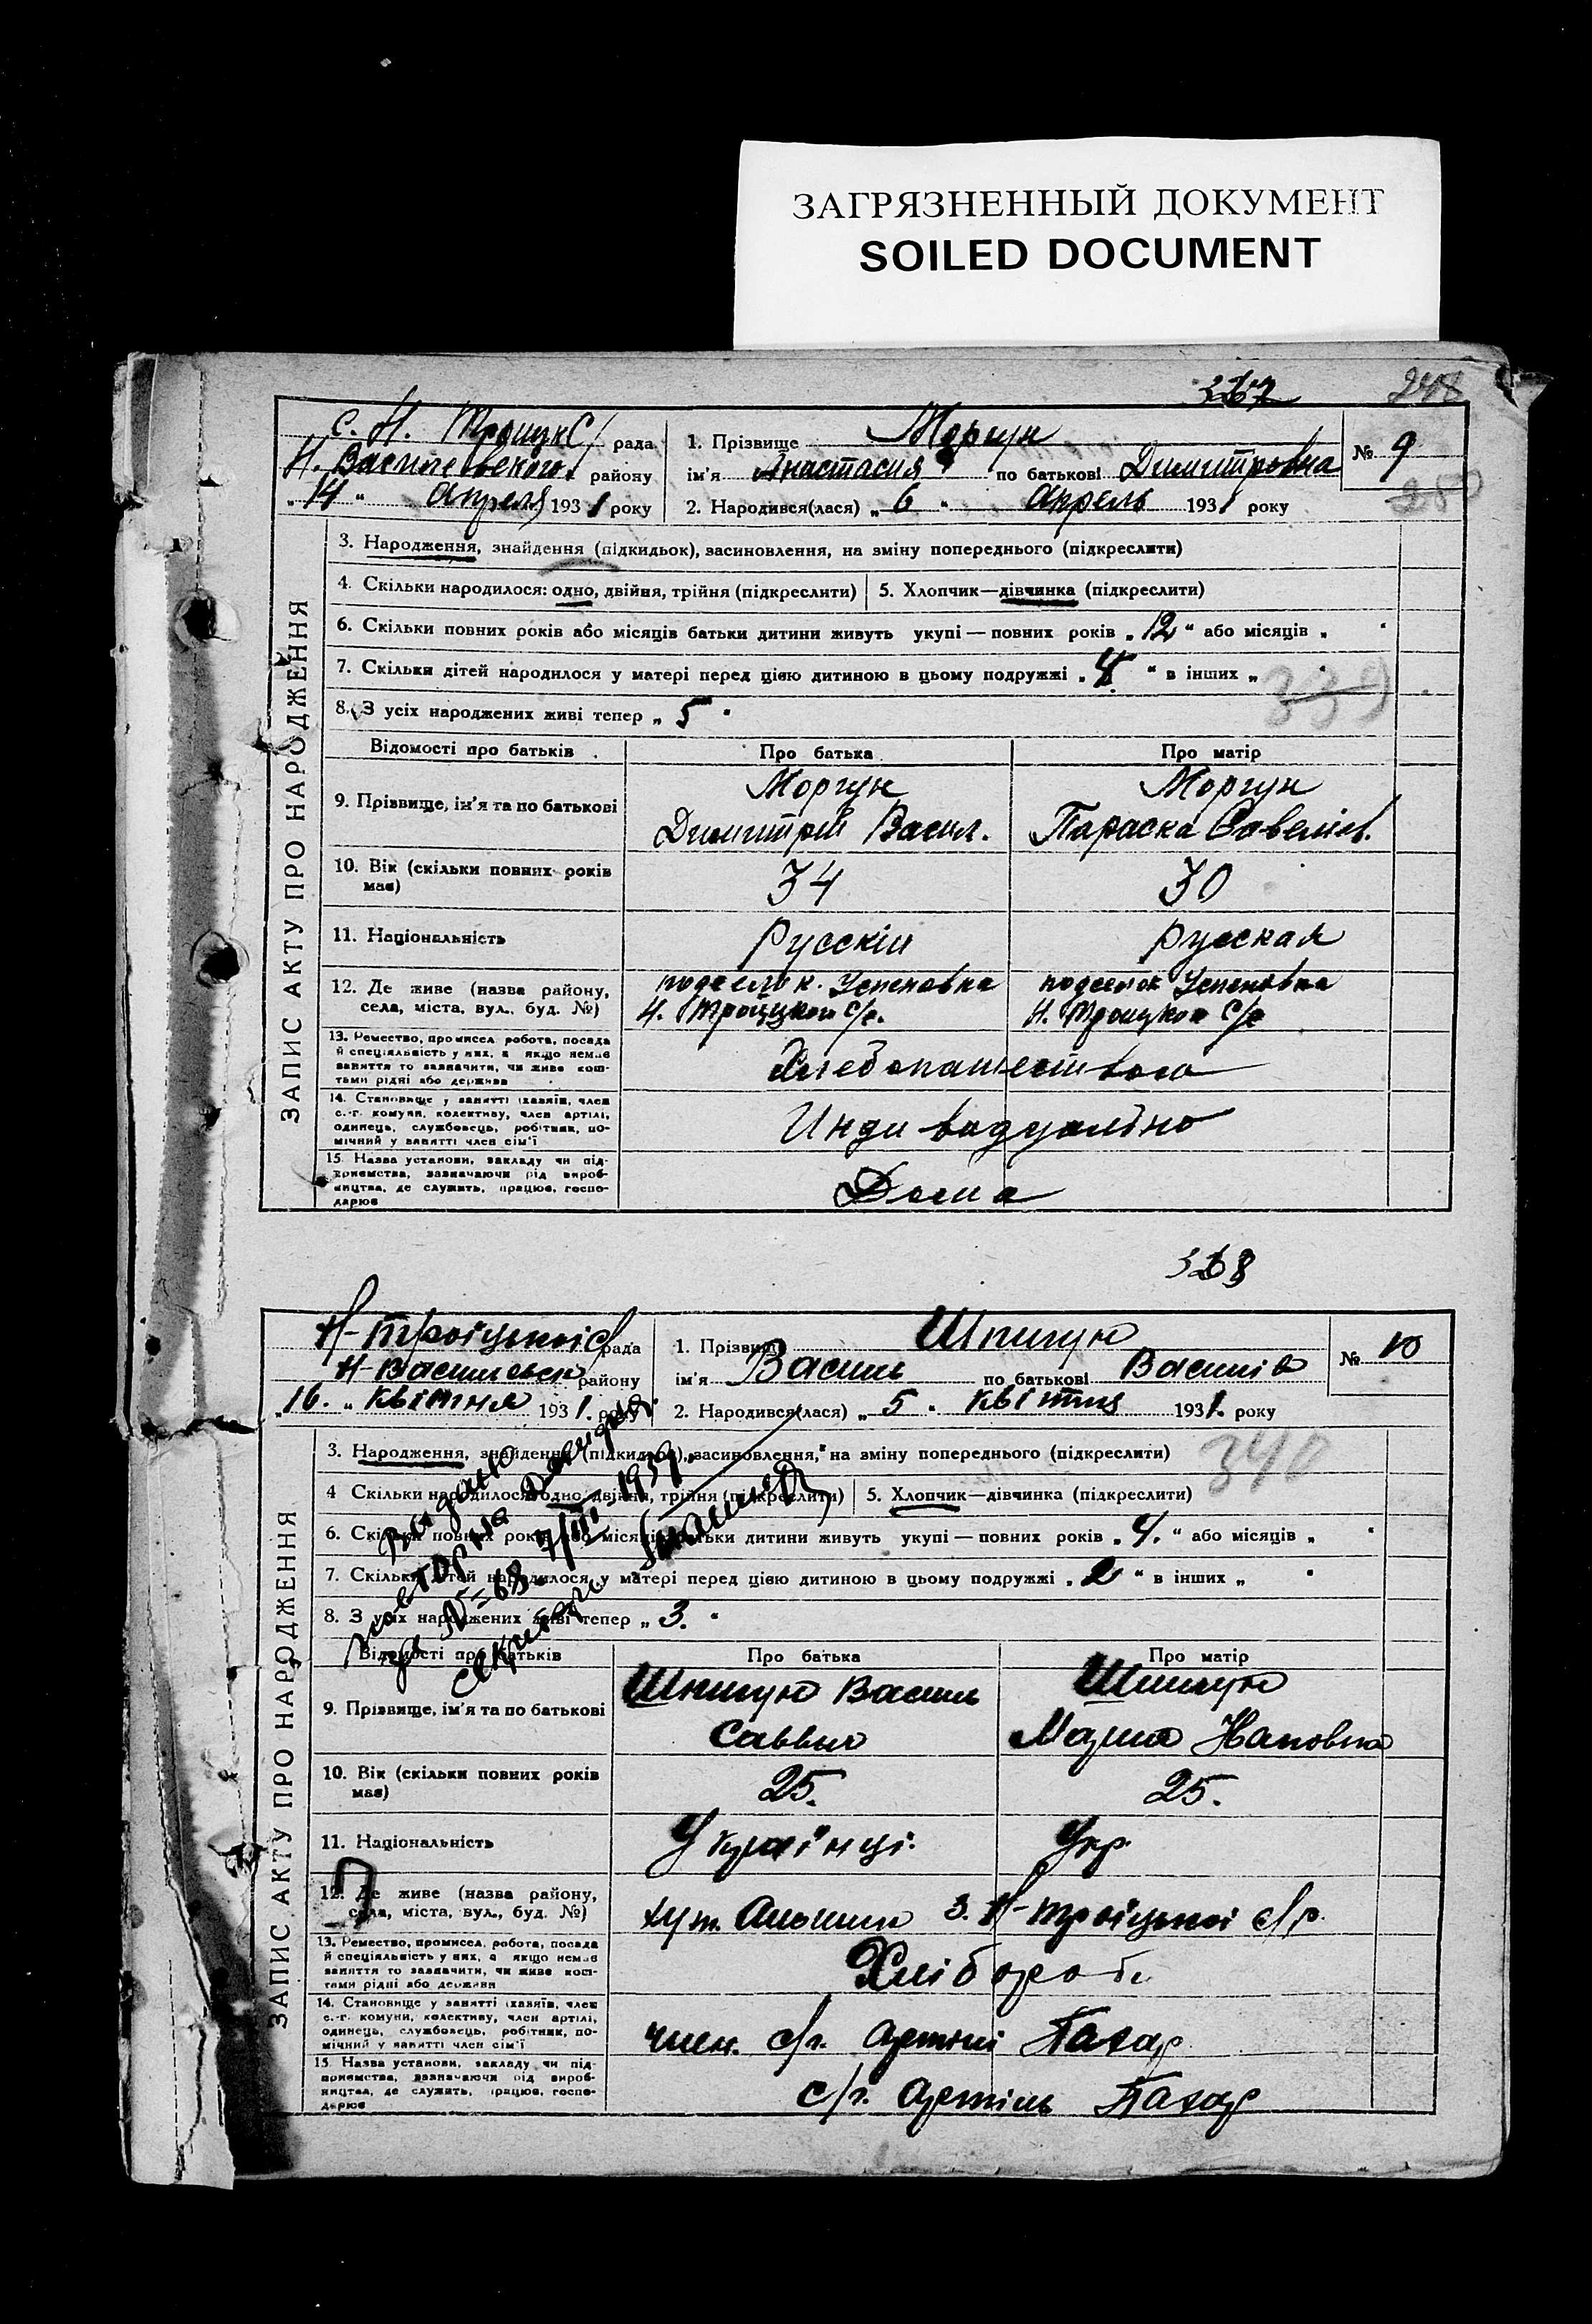 ЗАГРЯЗНЕННЫЙ ДОКУМЕНТ
SOILED DOCUMENT
248
с. Н. Троицк С/ рада
Н. Васильевского району
„ 14 “ апреля 1931 року
1. Прізвище Моргун
ім'я Анастасия по батькові Димитровна
2. Народився(лася) „ 6 “ Апрель 1931 року
№ 9
3. Народження, знайдення (підкидьок), засиновлення, на зміну попереднього (підкреслити)
4. Скільки народилося: одно, двійня, трійня (підкреслити) 5. Хлопчик—дівчинка (підкреслити)
6. Скільки повних років або місяців батьки дитини живуть укупі — повних років „ 12 “ або місяців „ “
7. Скільки дітей народилося у матері перед цією дитиною в цьому подружжі „ 4 “ в інших „ “
339
8. З усіх народжених живі тепер „ 5 “
Відомості про батьків Про батька Про матір
9. Прізвище, ім'я та по батькові
Моргун Моргун
Димитрий Васил. Параска Савеліев.
10. Вік (скільки повних років має) 34 30
11. Національність Русскіи русская
12. Де живе (назва району, села, міста, вул., буд. №)
подселок. Успеновка подселок Успеновка
Н. Троицкой С/с. Н. Троицкой С/с
13. Ремество, промисел, робота, посада й спеціяльність у них, а якщо немає заняття то зазначити, чи живе коштами рідні або держави
Хлебопашеством
14. Становище у занятті (хазяїн, член с.-г. комуни, колективу, член артілі, одинець, службовець, робітник, помічний у занятті член сім'ї
Индивидуально
15. Назва установи, закладу чи підприємства, зазначаючи рід виробництва, де служить, працює, господарює
Дома
ЗАПИС АКТУ ПРО НАРОДЖЕННЯ
368
Н-Троіцькоі С/ рада
Н-Васильевськ району
„ 16. “ квітня 1931. року
1. Прізвище Шпигун
ім'я Василь по батькові Василів
2. Народився(лася) „ 5 “ квітня 1931. року
№ 10
3. Народження, знайдення (підкидьок), засиновлення, на зміну попереднього (підкреслити)
340
4 Скільки народилося: одно, двійня, трійня (підкреслити) 5. Хлопчик—дівчинка (підкреслити)
6. Скільки повних років або місяців батьки дитини живуть укупі — повних років „ 4. “ або місяців „ “
7. Скільки дітей народилося у матері перед цією дитиною в цьому подружжі „ 2 “ в інших „ “
8. З усіх народжених живі тепер „ 3. “
за № 68. 7/III-1939
Відомості про батьків Про батька Про матір
9. Прізвище, ім'я та по батькові
Шпигун Василь Шпигун
Саввич Мария
10. Вік (скільки повних років має) 25. 25.
11. Національність Українці. Укр.
12. Де живе (назва району, села, міста, вул., буд. №)
хут. З. Н-Троіцькоі с/р.
13. Ремество, промисел, робота, посада й спеціяльність у них, а якщо немає заняття то зазначити, чи живе коштами рідні або держави
Хлібороби
14. Становище у занятті (хазяїн, член с.-г. комуни, колективу, член артілі, одинець, службовець, робітник, помічний у занятті член сім'ї
член. с/г. артілі Пахар
15. Назва установи, закладу чи підприємства, зазначаючи рід виробництва, де служить, працює, господарює
с/г. артіль Пахар
ЗАПИС АКТУ ПРО НАРОДЖЕННЯ